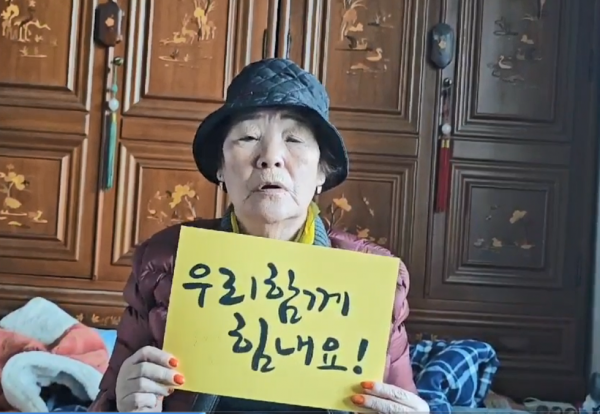 우리함께
힘내요!